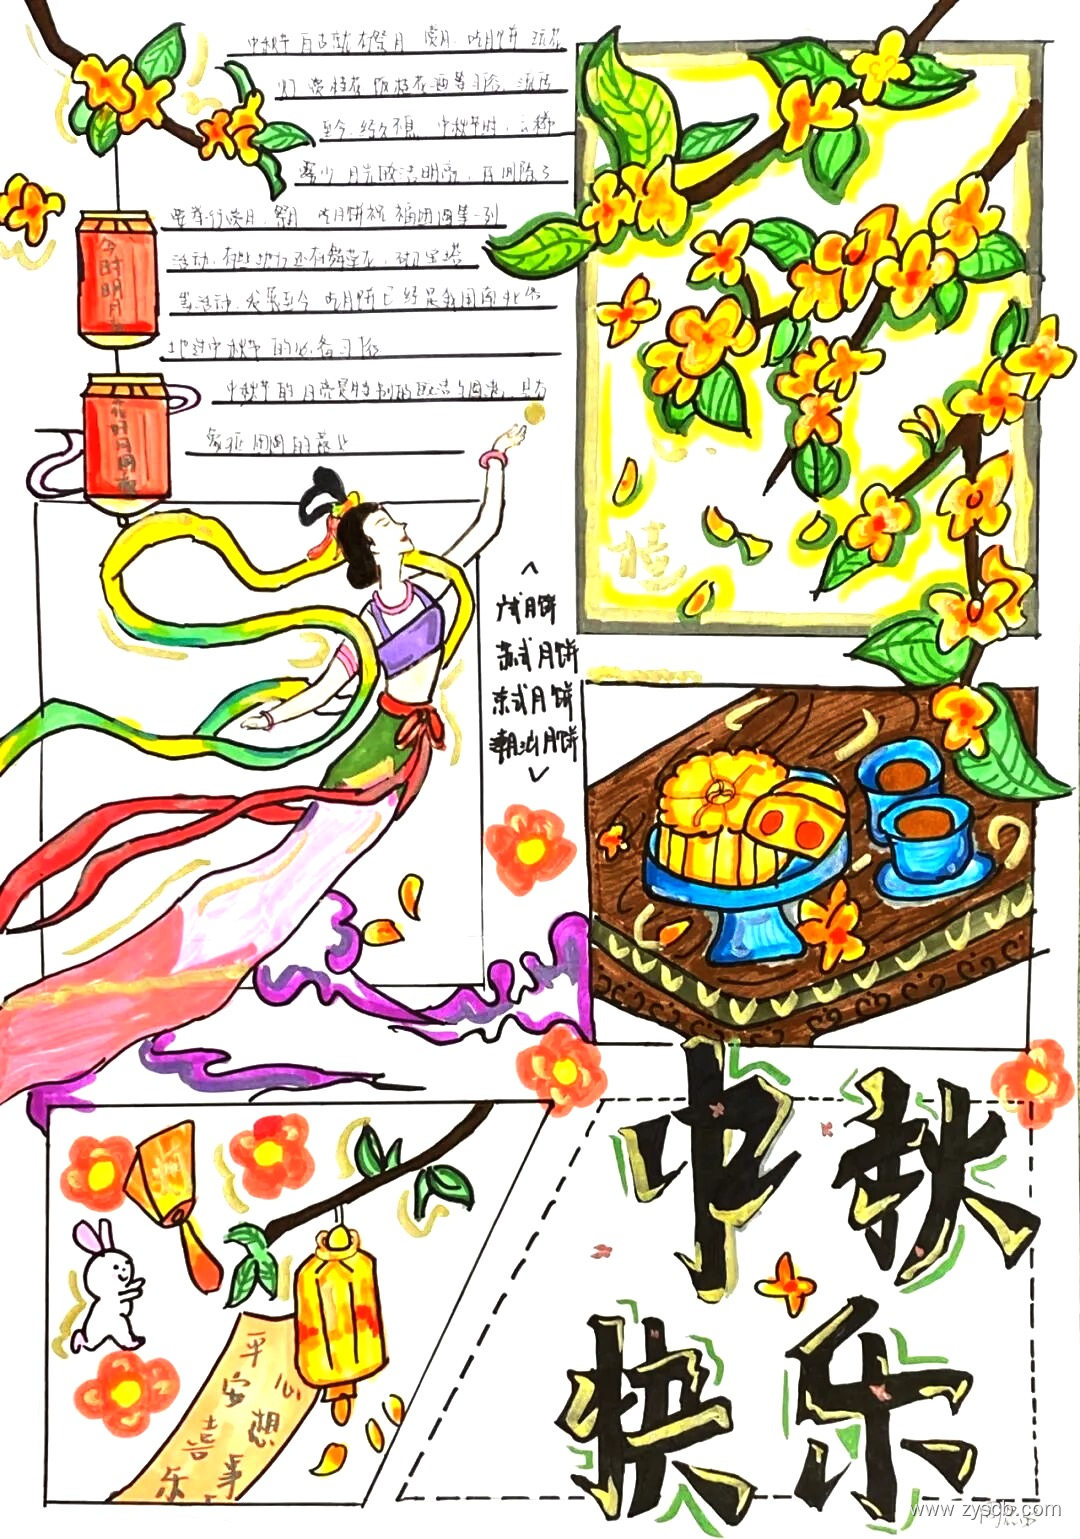 中秋节自古就有祭月、赏月、吃月饼、玩花
灯、赏桂花、饮桂花酒等习俗，流传
至今，经久不息。中秋节时，云稀
雾少，月光皎洁明亮，民间除了
要举行赏月、祭月、吃月饼祝福团圆等一列
活动，有些地方还有舞草龙，砌宝塔
等活动。发展至今，吃月饼已经是我国南北各
地过中秋节的必备习俗
中秋节的月亮是特别的皎洁与圆满，
今时明月
花好月圆
广式月饼
苏式月饼
京式月饼
潮汕月饼
桂
平安喜乐
心想事
中秋
快乐
www.zyscb.com